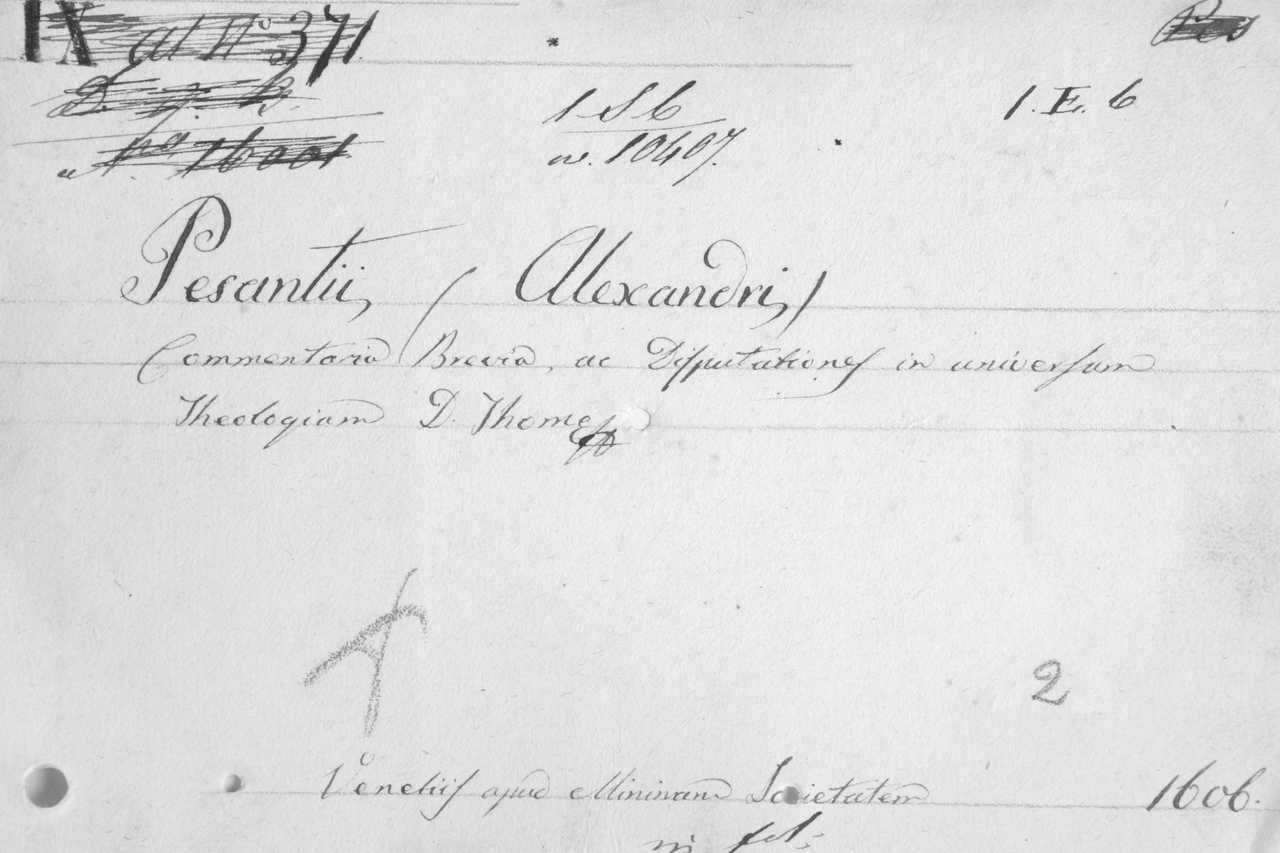 IX al No 371
1 S b
1. E. 6
nr. 10407.
No 16001
Pesantii, (Alexandri,)
Commentaria Brevia, ac Disputationes in universam
Theologiam D. Thome
2
Venetiis apud Minimam Societatem 1606.
in fol: